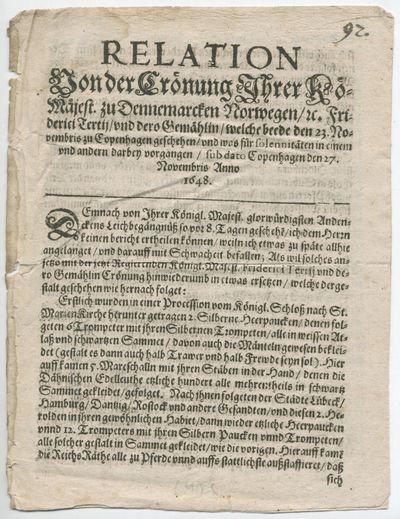 92.
RELATION
Von der Crönung Ihrer Kö-
Majest. zu Dennemarcken Norwegen/ ꝛc. Fri-
derici Tertij/ vnd dero Gemählin/ welche beede den 23. No-
vembris zu Copenhagen geschehen/ vnd was für solennitäten in einem
vnd andern darbey vorgangen / sub dato Copenhagen den 27.
Novembris Anno
1648.
DEmnach von Ihrer Königl. Majest. glorwürdigsten Anden-
ckens Leichbegängnüß so vor 8. Tagen geschehē/ ich dem Herrn
keinen bericht ertheilen können/ weiln ich etwas zu späte allhie
angelanget/ vnd darauff mit Schwacheit befallen; Als wil solches an-
jetzo mit der jetzt Regierenden Königl. Majest. Friderici Tertij vnd de-
ro Gemählin Crönung hinwiederumb in etwas ersetzen/ welche derge-
stalt geschehen wie hernach folget:
Erstlich wurden in einer Procession vom Königl. Schloß nach St.
Marien Kirche herunter getragen 2. Silberne Heerpaucken/ denen fol-
geten 6 Trompeter mit jhren Silbernen Trompetten/ alle in weissen At-
laß vnd schwartzen Sammet / davon auch die Mäntel gewesen beklei-
det (gestalt es dann auch halb Trawer vnd halb Frewde seyn sol). Hier
auff kamen 5. Marschalln mit jhren Stäben in der Hand / denen die
Dähnischen Edelleuthe etzliche hundert alle mehrentheils in schwartz
Sammet gekleidet/ gefolget. Nach jhnen folgeten der Städte Lübeck/
Hamburg/ Dantzig/ Rostock vnd andere Gesandten/ vnd diesen 2. He-
rolden in jhren gewöhnlichen Habiet/ dann wieder etzliche Heerpaucken
vnnd 12. Trompeters mit jhren Silbern Paucken vnnd Trompeten/
alle solcher gestalt in Sammet gekleidet/ wie die vorigen. Hierauff kamē
die Reichs Räthe alle zu Pferde vnnd auffs stattlichste außstaffieret/ daß
sich